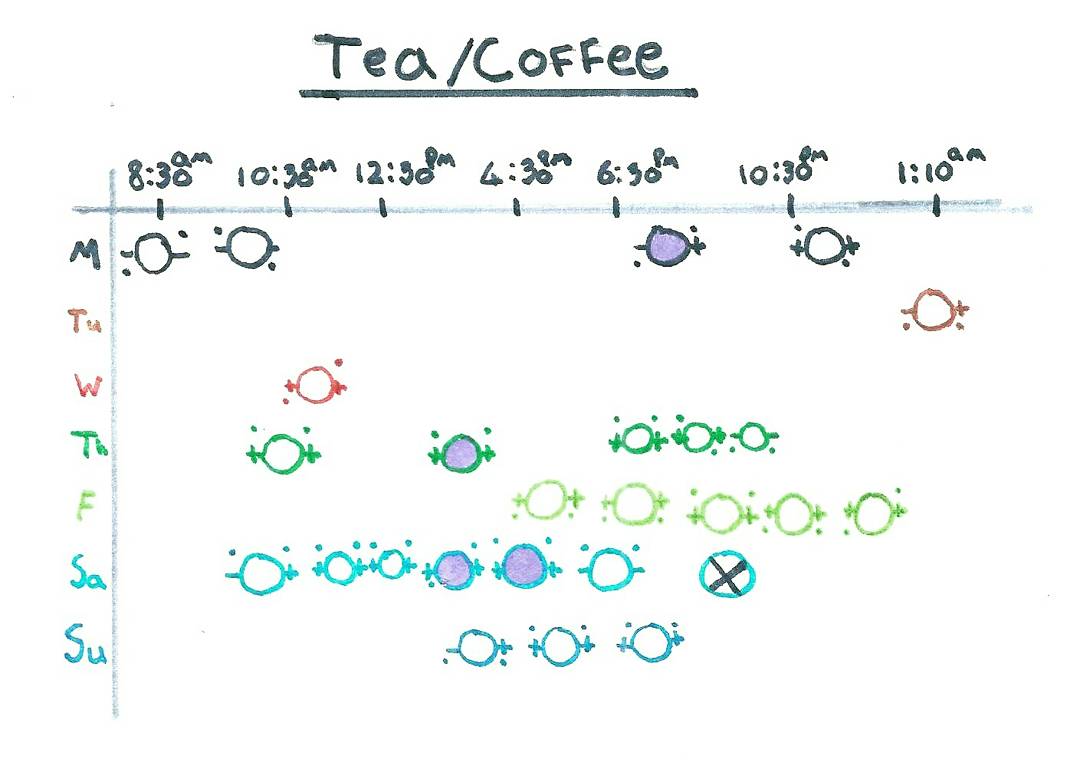 Tea/Coffee
8:30am 10:30am 12:30pm 4:30pm 6:30pm 10:30pm 1:10am
M
Tu
W
Th
F
Sa
Su